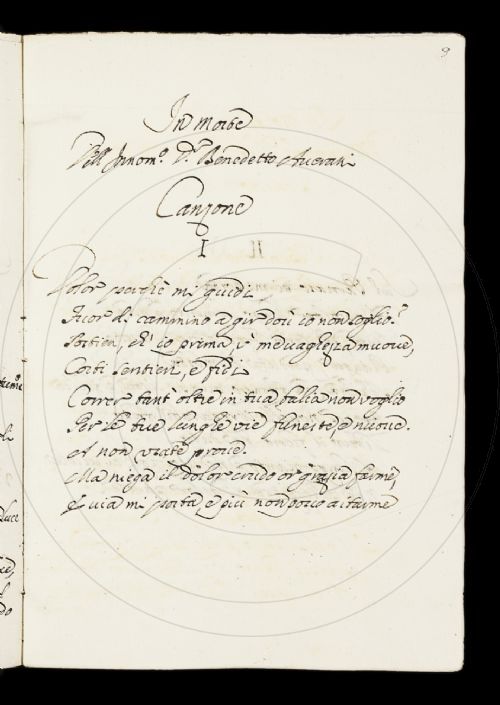 9
In morte
Dell' Innom.º D.r Benedetto Averani
Canzone
I
Dolor perchè mi guidi
Fuor di cammino a gir dov' io non soglio?
Sentieri, ch' io prima, e me vaghezza muove,
Corti sentieri, e fidi
Correr tant' oltre in tua balia non voglio
Per le tue lunghe vie funeste, e nuove.
A non usate prove.
Ma niega il dolor crudo or grazia farmi,
E via mi porta, e più non posso aitarme